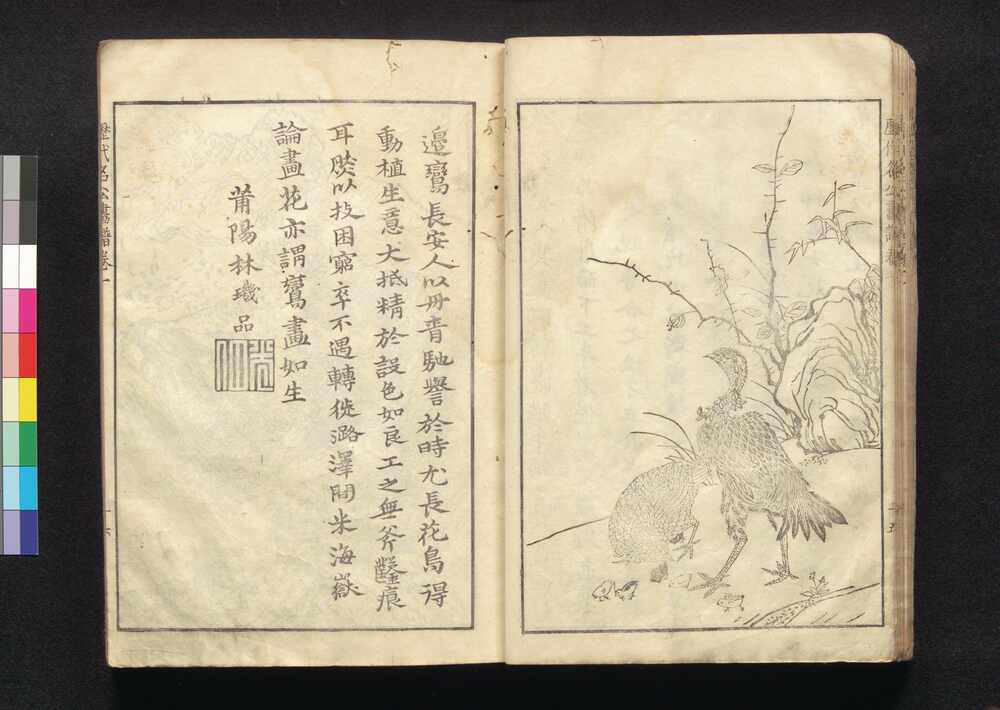 邉鸞長安人以丹青馳譽於時尤長花鳥得
動植生意大抵精於設色如良工之無斧鑿痕
耳然以技困窮卒不遇轉徙潞澤間米海嶽
論畫花亦謂鸞畫如生
莆陽林璣品
歷代名公畫譜卷一
十六